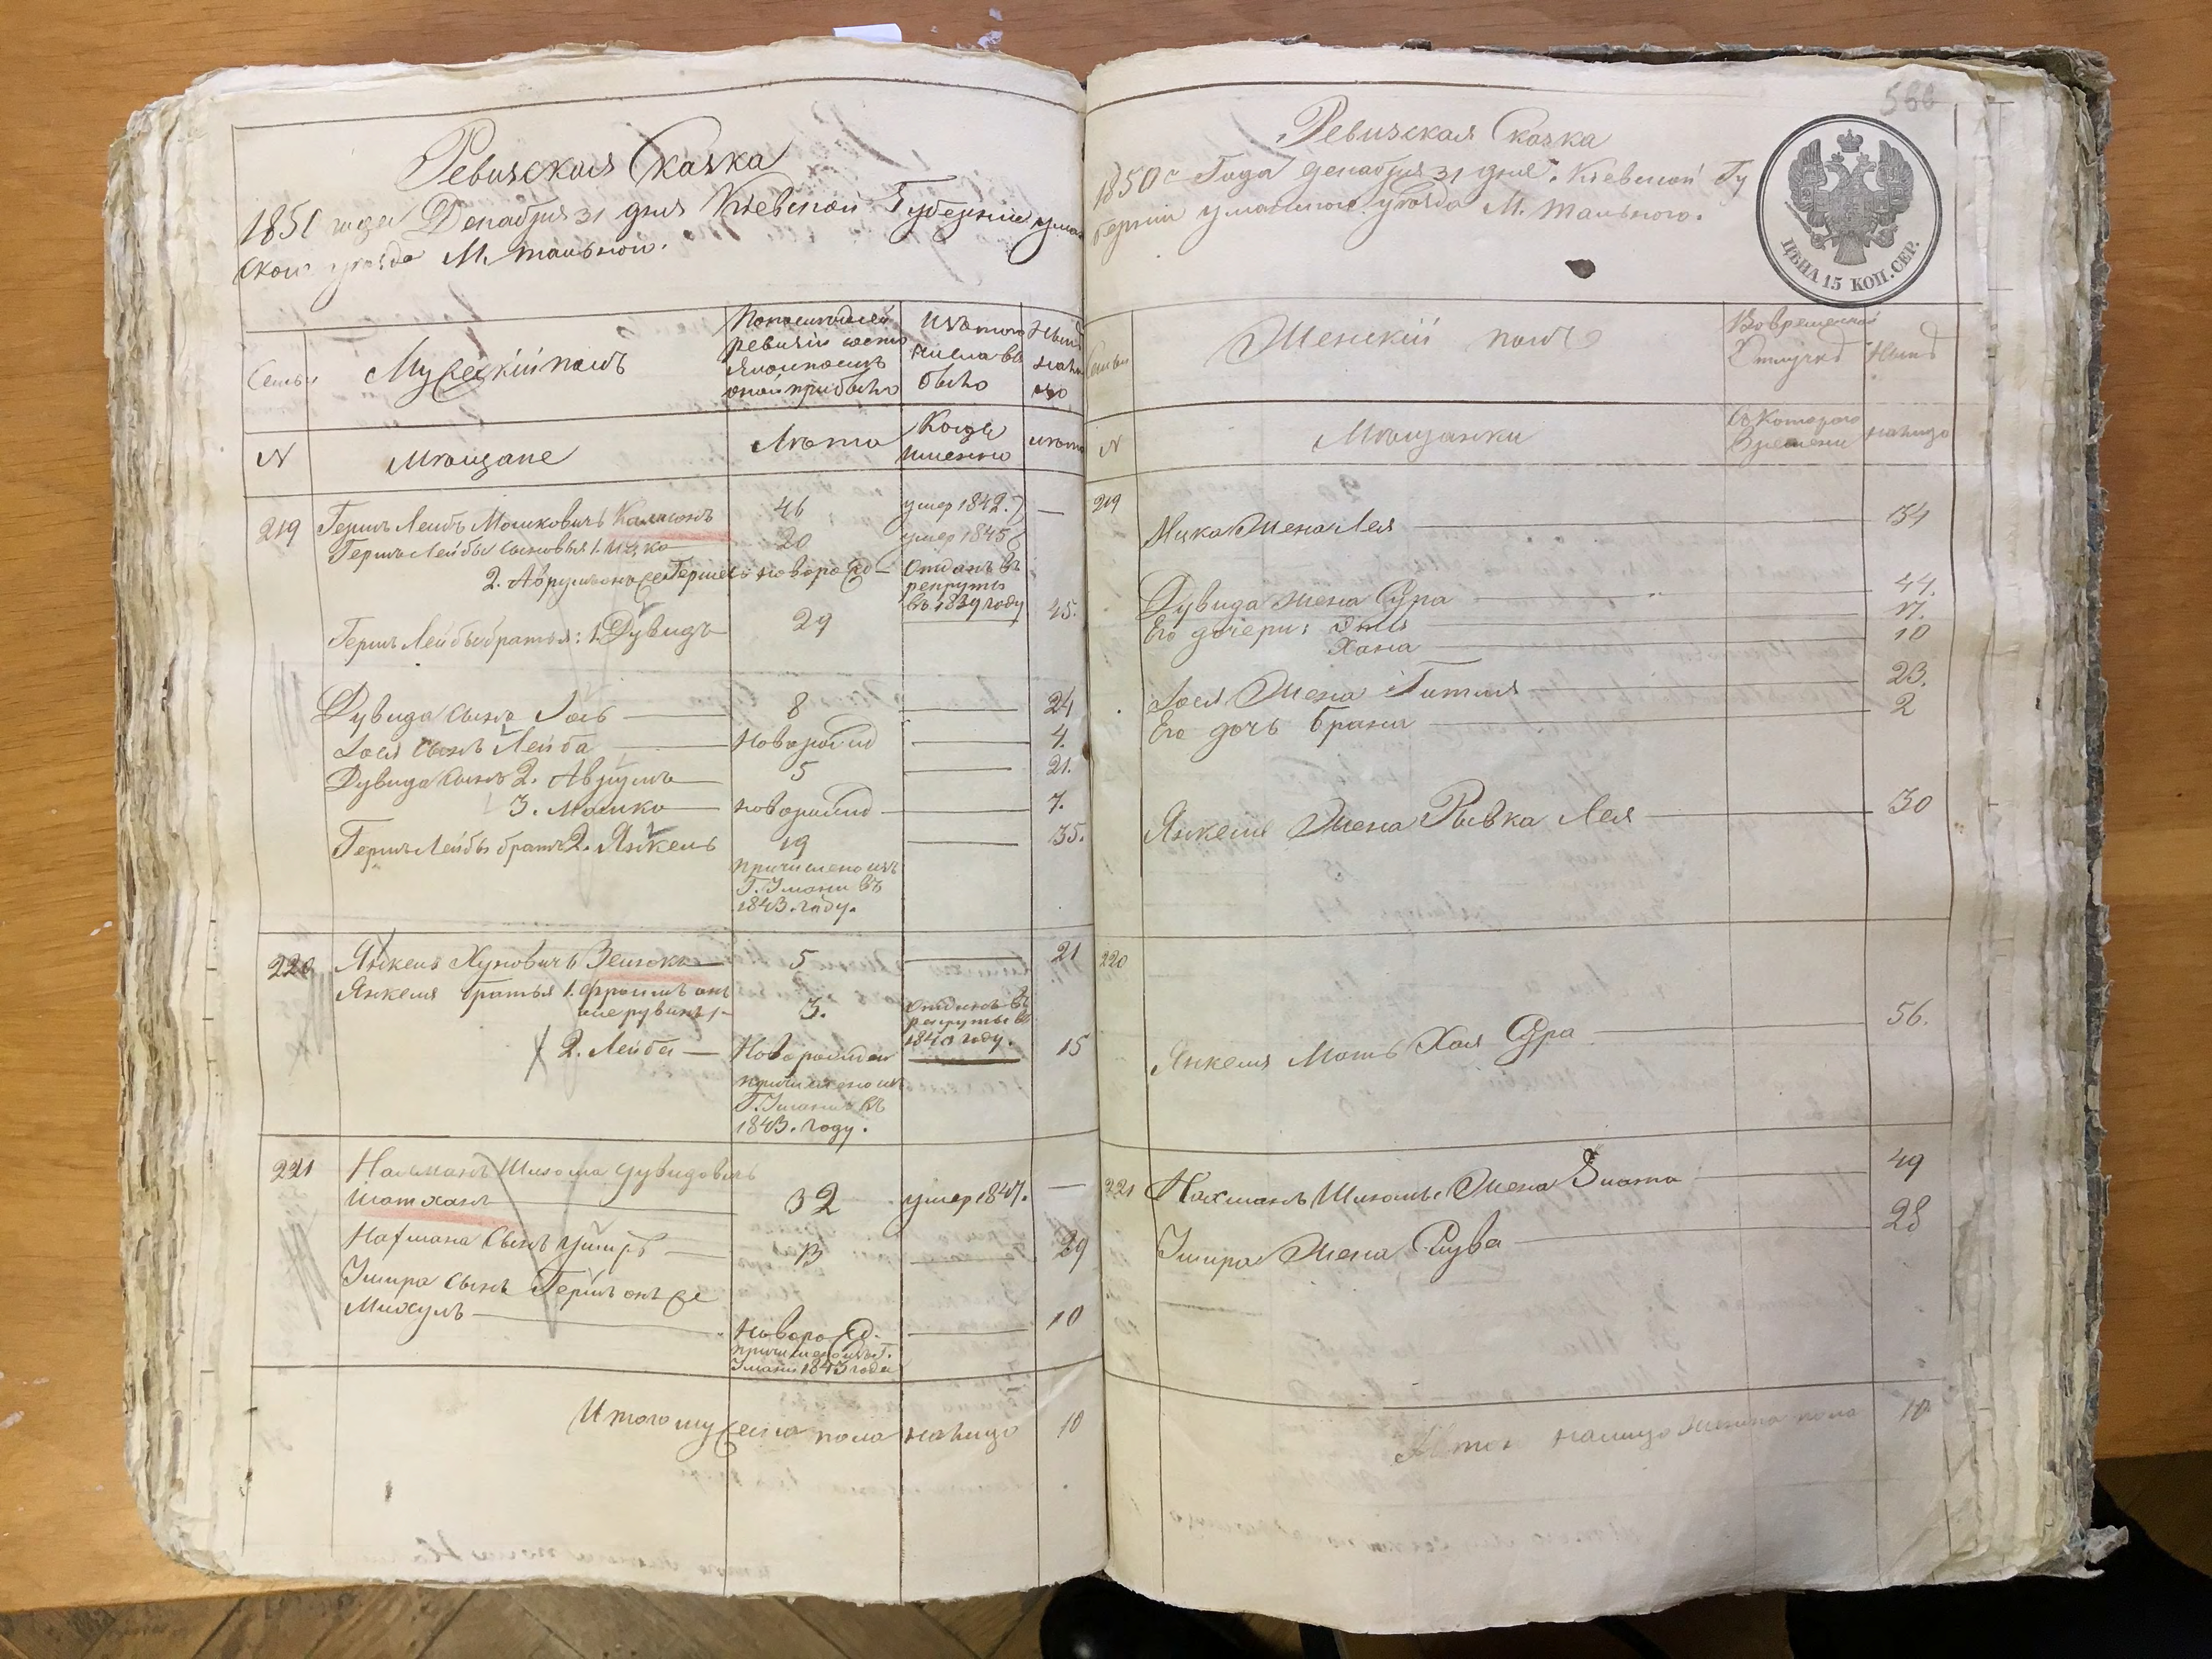 Ревизская Сказка
1850 года Декабря 31 дня Киевской Губернии Уман
ской уезда М. Тального.
Семьи
Мужеский полъ
По последней
ревизии состо
яло и после
оной прибыло
Изъ того
числа вы
было
Ныне
на ли
цо
N
Мещане
Лета
Когда
именно
лета
219
Гершъ Лейбъ Мошковичъ
46
умер 1842.
—
Гершъ Лейбы сыновья 1. Ицко
20
умер 1845
2. Аврумъ онъ же Гершко
новорожд
Отданъ въ
рекруты
въ 1839 году
Гершъ Лейбы братья: 1. Дувидъ
29
45.
Дувида сынъ Иось
8
24
Иося сынъ Лейба
новорожд
4.
Дувида сынъ 2. Аврумъ
5
21.
3. Мошко
новорожд
7.
Гершъ Лейбы братъ 2. Янкель
19
35.
причислено изъ
Г. Умани въ
1843. году.
220
Янкель Хуновичъ
5
21
Янкеля братья 1. Фроимъ онъ
же Рувинъ
3.
Отданъ въ
рекруты въ
1840 году.
2. Лейба
Новорожден
15
причислено изъ
Г. Умани въ
1843. году.
221
Нахманъ Шлiома Дувидовичъ
Шатханъ
32
умер 1847.
—
Нахмана сынъ Умиръ
13
29
Умира сынъ Гершъ онъ же
Михуль
новорожд.
10
причислено изъ Г.
Умани 1843 года
Итого мужеска пола налицо
10
566
Ревизская Сказка
1850го Года декабря 31 дня. Киевской Гу
бернии Уманского уезда М. Тального.
ЦѢНА 15 КОП. СЕР.
Семьи
Женскiй полъ
Во временной
Отлучке
Ныне
N
Мещанки
Съ Которого
Времени
налицо
219
Ицка Жена Лея
34
Дувида жена Сура
44.
Его дочери:
17.
Хана
10
Иося Жена Гитля
23.
Его дочь Брана
2
Янкеля Жена Рывка Лея
30
220
Янкеля Мать Хая Сура
56.
221
Нахманъ Шлiомы Жена Злата
49
Умира Жена Рухва
28
Итого налицо женска пола
10